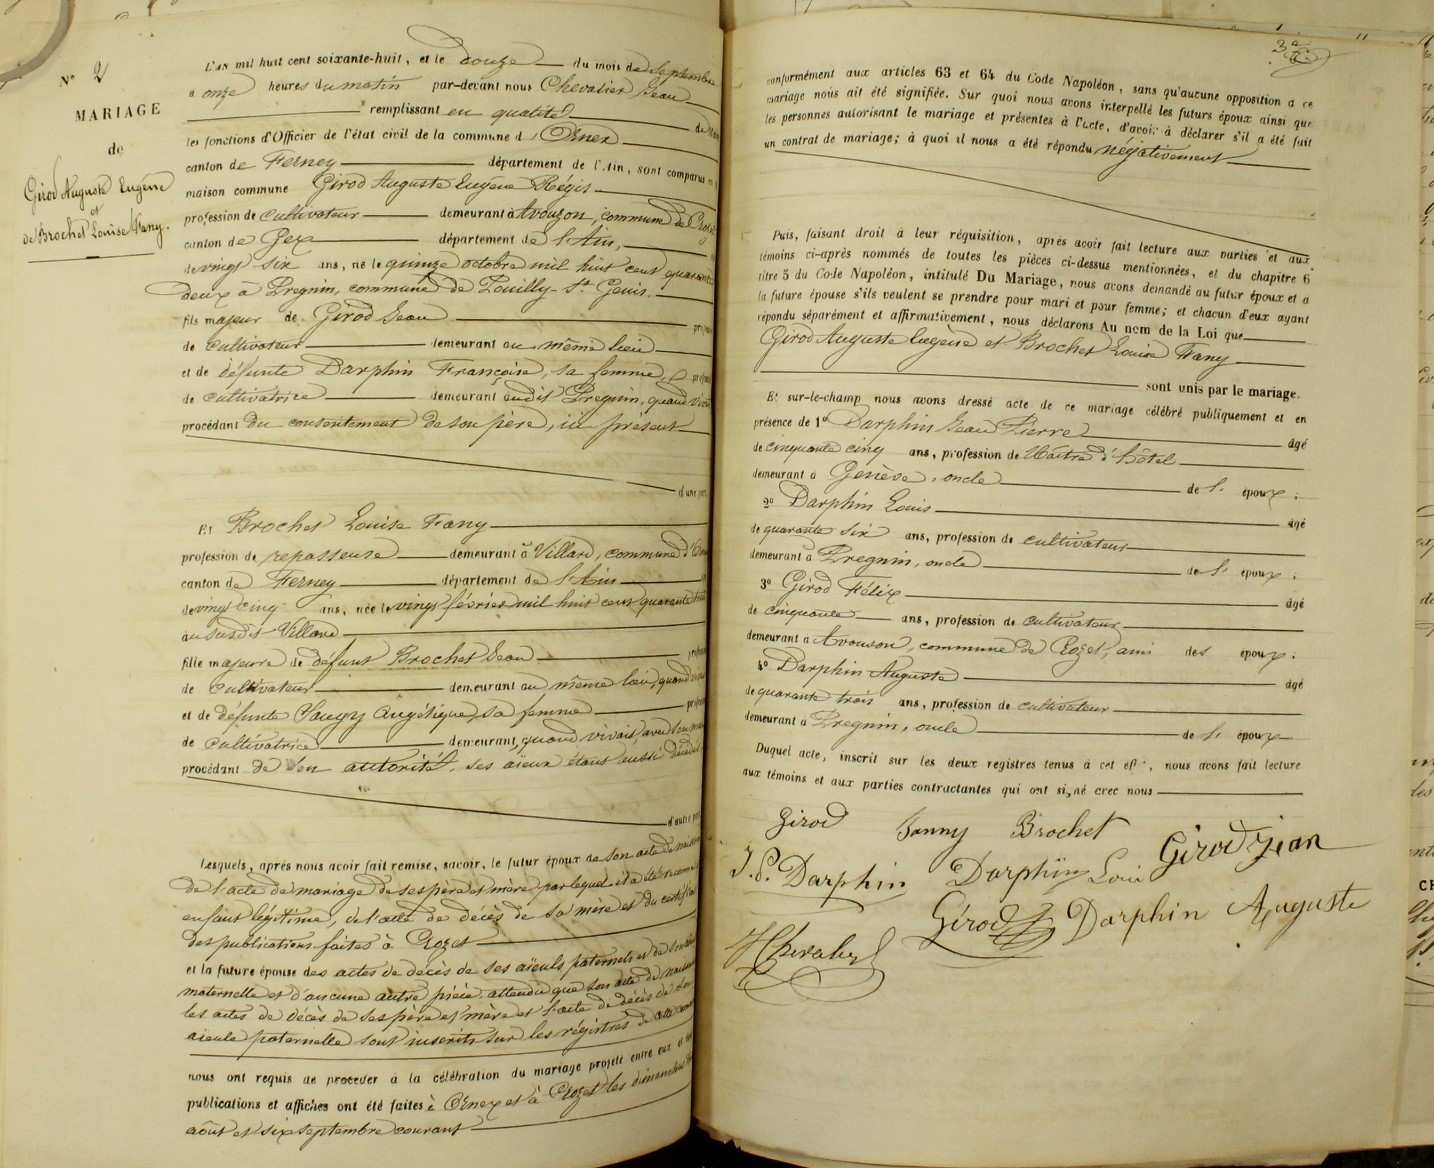 N° 2
MARIAGE
de
Girod Auguste Eugène
et
de Brochet Louise Fany.
L'an mil huit cent soixante-huit, et le douze du mois de septembre
a onze heures du matin par-devant nous Chevalier Jean
remplissant en qualité de
les fonctions d'Officier de l'état civil de la commune d'Ornex
canton de Ferney département de l'Ain, sont comparus en
maison commune Girod Auguste Eugène Régis
profession de cultivateur demeurant à Avouzon, commune de Crozet
canton de Gex département de l'Ain,
de vingt six ans, né le quinze octobre mil huit cent quarante
deux à Pregnin, commune de Pouilly-St Genis.
fils majeur de Girod Jean
de cultivateur demeurant au même lieu
et de défunte Darphin Françoise, sa femme,
de cultivatrice demeurant audit Pregnin, quand vivait
procédant du consentement de son père, ici présent
d'une part
Et Brochet Louise Fany
profession de repasseuse demeurant à Villard, commune d'Ornex
canton de Ferney département de l'Ain
de vingt cinq ans, née le vingt février mil huit cent quarante trois
au susdit Villard
fille majeure de défunt Brochet Jean
de cultivateur demeurant au même lieu, quand vivait
et de défunte Angélique, sa femme
de cultivatrice demeurant, quand vivait, avec son mari
procédant de son autorité, ses aïeux étant aussi décédés
d'autre part
Lesquels, après nous avoir fait remise, savoir, le futur époux de son acte de naissance
de l'acte de mariage de ses père et mère par lequel il a été reconnu
enfant légitime, de l'acte de décès de sa mère et du certificat
des publications faites à Crozet
et la future épouse des actes de décès de ses aïeuls paternels et de son aïeule
maternelle et d'aucune autre pièce attendu que son acte de naissance
les actes de décès de ses père et mère et l'acte de décès de son
aïeule paternelle sont inscrits sur les régistres de cette commune
nous ont requis de procéder à la célébration du mariage projeté entre eux et dont
publications et affiches ont été faites à Ornex et à Crozet les dimanches
août et six septembre courant
3e
conformément aux articles 63 et 64 du Code Napoléon, sans qu'aucune opposition a ce
mariage nous ait été signifiée. Sur quoi nous avons interpellé les futurs époux ainsi que
les personnes autorisant le mariage et présentes à l'acte, d'avoir à déclarer s'il a été fait
un contrat de mariage; à quoi il nous a été répondu négativement
Puis, faisant droit à leur réquisition, après avoir fait lecture aux parties et aux
témoins ci-après nommés de toutes les pièces ci-dessus mentionnées, et du chapitre 6
titre 5 du Code Napoléon, intitulé Du Mariage, nous avons demandé au futur époux et a
la future épouse s'ils veulent se prendre pour mari et pour femme; et chacun d'eux ayant
répondu séparément et affirmativement, nous déclarons Au nom de la Loi que
Girod Auguste Eugène et Brochet Louise Fany
sont unis par le mariage.
Et sur-le-champ nous avons dressé acte de ce mariage célébré publiquement et en
présence de 1° Darphin Jean Pierre âgé
de cinquante cinq ans, profession de Maître d'hôtel
demeurant à Genève, oncle de l' époux;
2° Darphin Louis âgé
de quarante six ans, profession de cultivateur
demeurant à Pregnin, oncle de l' époux;
3° Girod Félix âgé
de cinquante ans, profession de cultivateur
demeurant à Avouson, commune de Crozet, ami des époux;
4° Darphin Auguste âgé
de quarante trois ans, profession de cultivateur
demeurant à Pregnin, oncle de l' époux
Duquel acte, inscrit sur les deux registres tenus à cet effet, nous avons fait lecture
aux témoins et aux parties contractantes qui ont signé avec nous
Girod Fanny Brochet Girod Jean
J. P. Darphin Darphin Loui
Girod F Darphin Auguste
Chevalier